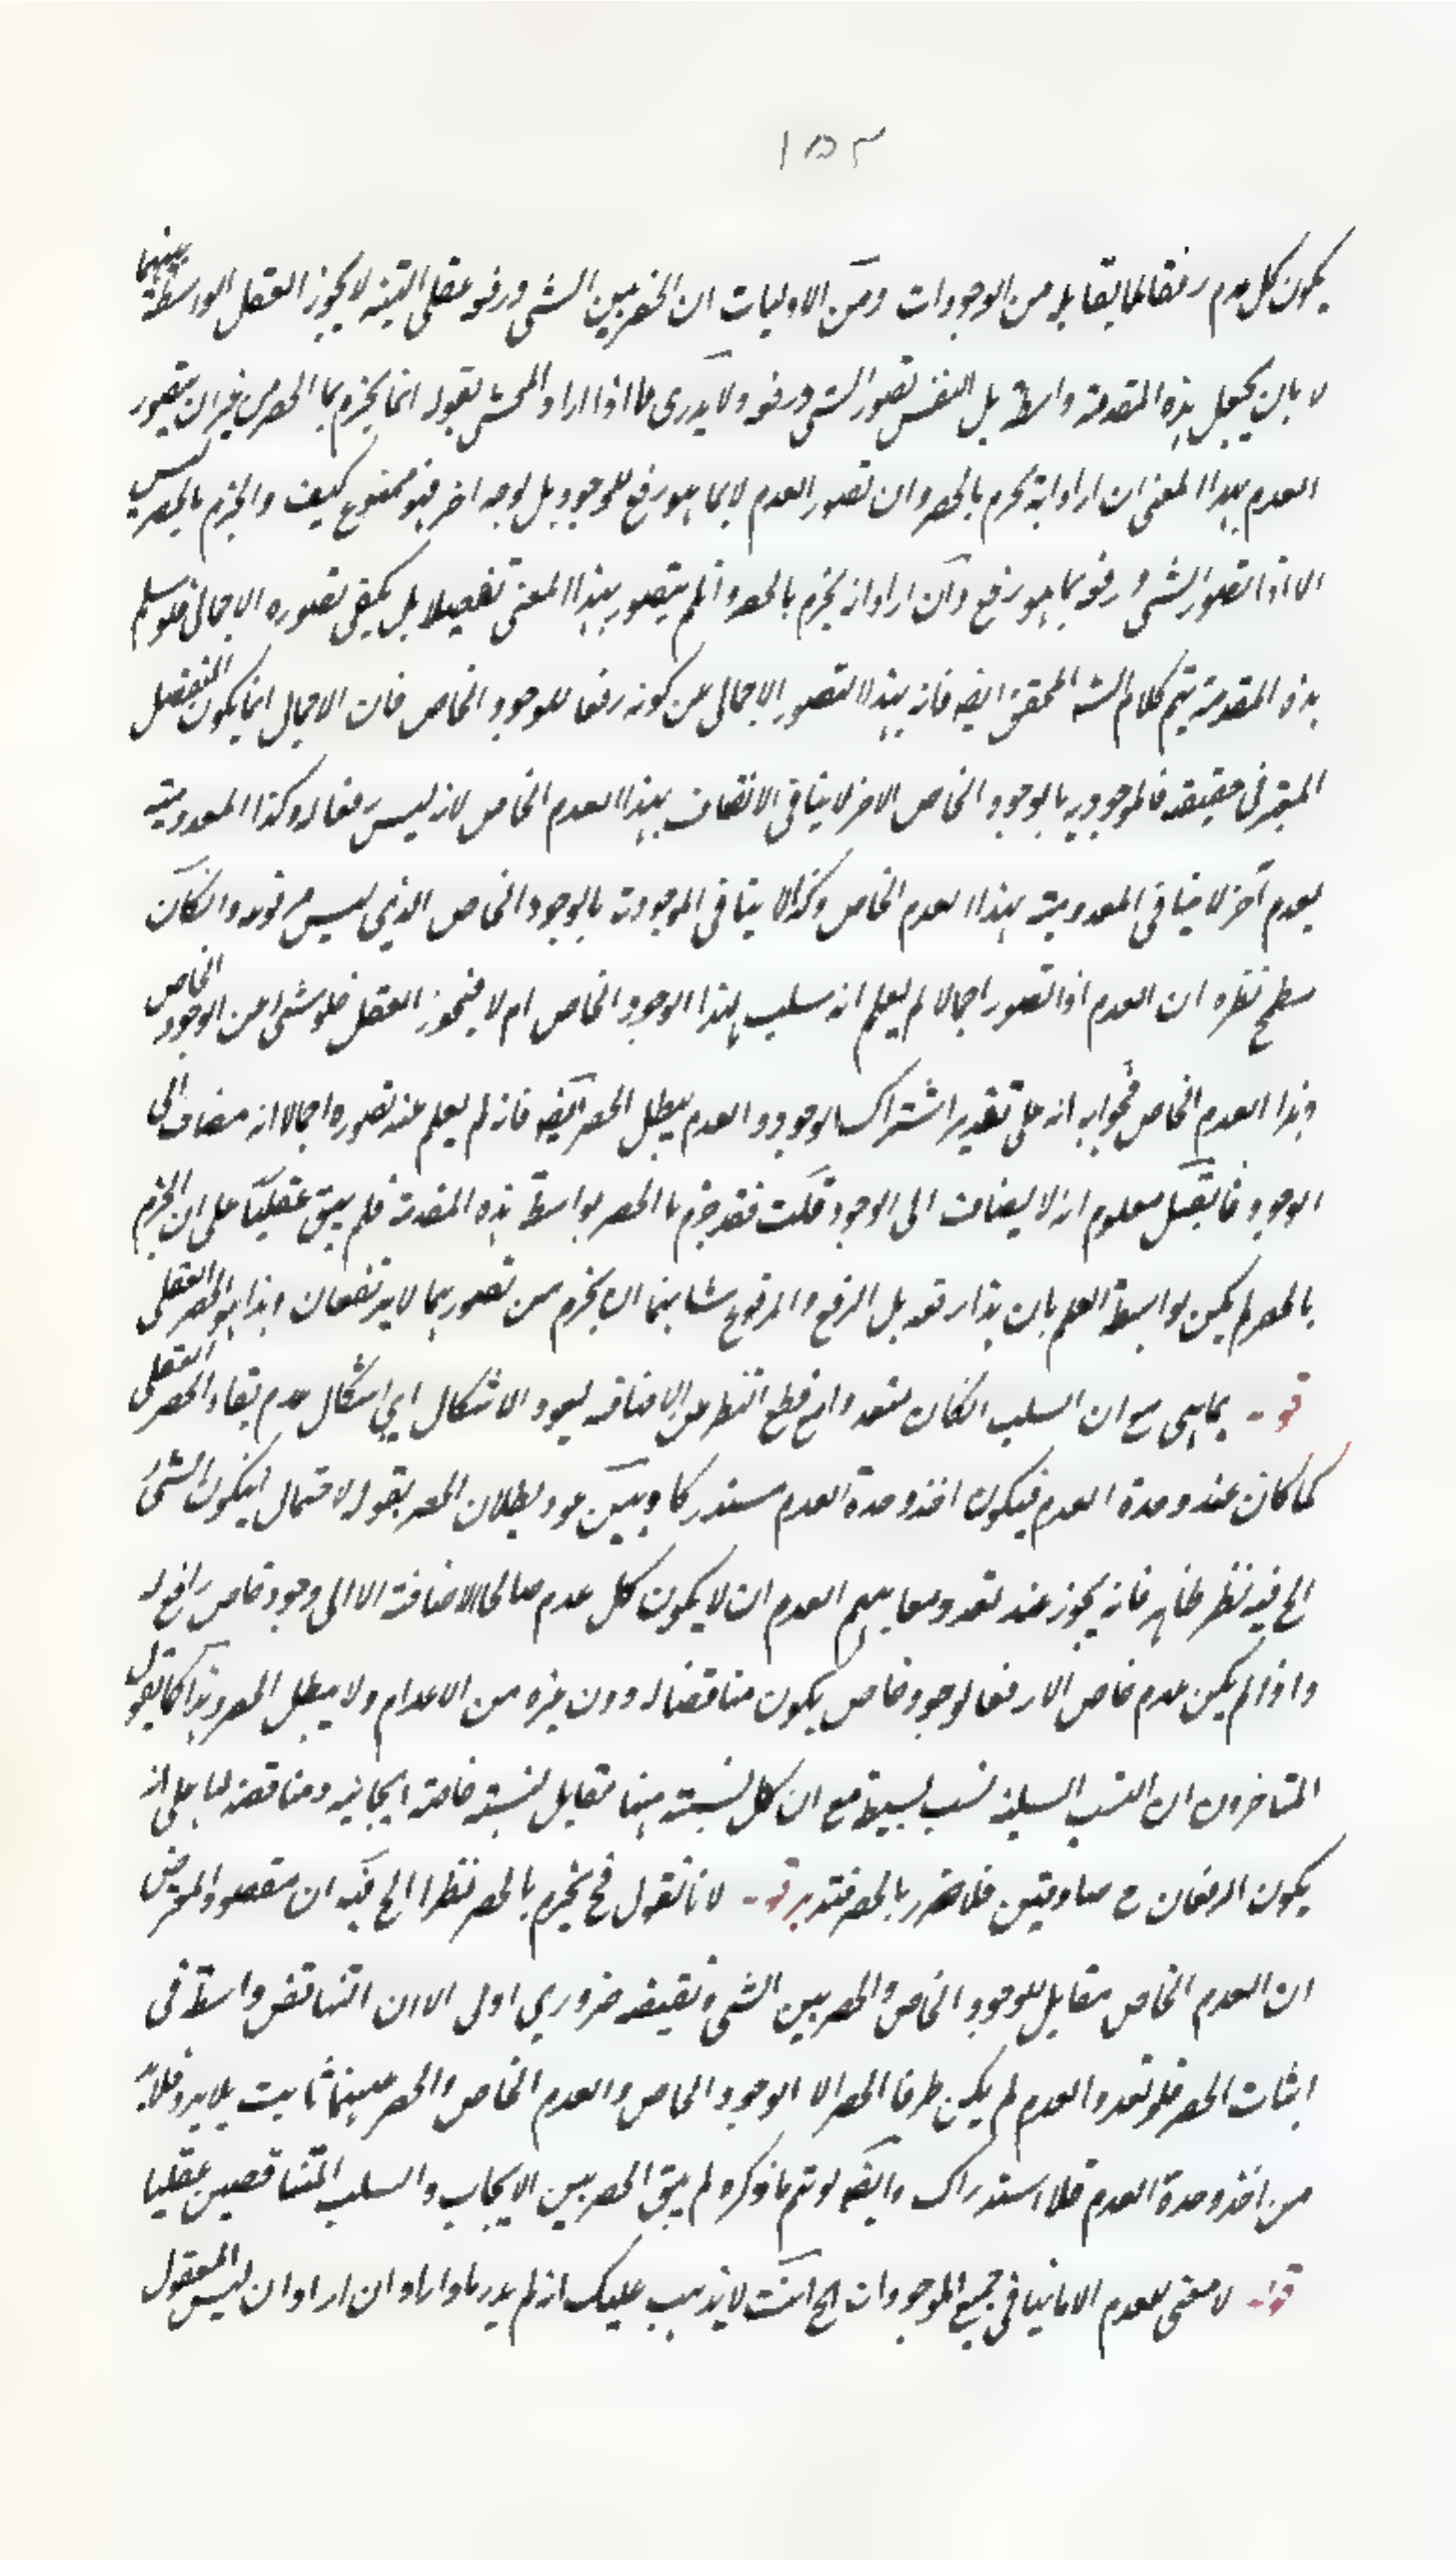 ١٥٣
يكون كل عدم رفعا لما يقابله من الوجودات ومن الاوليات ان الحصر بين الشي ورفعه عقلي البتة لا يجوز العقل الواسطة بينهما
لا بان يجعل هذه المقدمة واسطة بل بنفس تصور الشي ورفعه ولا يدرى ما اذا اراد المحشي بقوله انما يجزم بالحصر من غير ان يتصور
العدم بهذا المعنى ان اراد انه يجزم بالحصر وان تصور العدم لا بما هو رفع للوجود بل لوجه اخر فهو ممنوع كيف والجزم بالحصر ليس
الا اذا تصور الشي ورفعه بما هو رفع وان اراد انه يجزم بالحصر وان لم يتصور بهذا المعنى تفصيلا بل يكفي تصوره الاجمالي فلو سلم
هذه المقدمة يتم كلام الشه المحقق ايضه فانه بهذا التصور الاجمالي عن كونه رفعا للوجود الخاص فان الاجمال انما يكون التفصيل
المعتبر في حقيقته فالموجودية بالوجود الخاص الاخر لا ينافي الاتصاف بهذا العدم الخاص لانه ليس رفعا له وكذا المعدومية
بعدم آخر لا ينافي المعدومية بهذا العدم الخاص وكذا لا ينافي الموجودة بالوجود الخاص الذي ليس مرفوعه وان كان
مطمح نظره ان العدم اذا تصور اجمالا لم يعلم انه سلب لهذا الوجود الخاص ام لا فيجوز العقل خلو شي عن الوجود الخاص
وهذا العدم الخاص فجوابه انه على تقدير اشتراك الوجود والعدم يبطل الحصر ايضه فانه لم يعلم عند تصوره اجمالا انه مضاف الى
الوجود فان قيل معلوم انه لا يضاف الى الوجود قلت فقد جزم بالحصر بواسطة هذه المقدمة فلم يبق عقليا على ان الجزم
بالحصر لم يكن بواسطة العلم بان هذا رفعه بل الرفع والمرفوع شانهما ان يجزم من تصورهما لا يرتفعان وهذا هو الحصر العقلي
قوله بما هي مع ان السلب ان كان متعددا مع قطع النظر عن الاضافة ليعود الاشكال اي اشكال عدم بقاء الحصر العقلي
كما كان عند وحدة العدم فيكون اخذ وحدة العدم مستدركا وبين عود بطلان الحصر بقوله لاحتمال ان يكون الشي
الخ فيه نظر ظاهر فانه يجوز عند تعدد معاني العدم ان لا يكون كل عدم صالحا لاضافة الا الى وجود خاص رافع له
واذا لم يكن عدم خاص الا رفعا لوجود خاص يكون مناقضا له دون غيره من الاعدام ولا يبطل الحصر وهذا كما يقول
المتاخرون ان النسب السلبية نسب بسيطة مع ان كل نسبة منها تقابل نسبة خاصة ايجابية ومناقضة لها على انه
يكون الرفعان ح صادقين فلا ضرر بالحصر فتدبر قوله لانا نقول فح يجزم بالحصر نظرا الخ فيه ان مقصود المعترض
ان العدم الخاص مقابل للوجود الخاص والحصر بين الشي ونقيضه ضروري اولى لا ان التناقض واسطة في
اثبات الحصر فلو تعدد العدم لم يكن طرفا الحصر الا الوجود الخاص والعدم الخاص والحصر بينهما ثابت بلا ريب فلا بد
من اخذ وحدة العدم فلا استدراك وايضه لو تم ما ذكره لم يبق الحصر بين الايجاب والسلب المتناقضين عقليا
قوله لا معنى للعدم الا ما ينافي جميع الموجودات الخ انت لا يذهب عليك انه لم يدر ما اراد ان اراد ان ليس المعقول